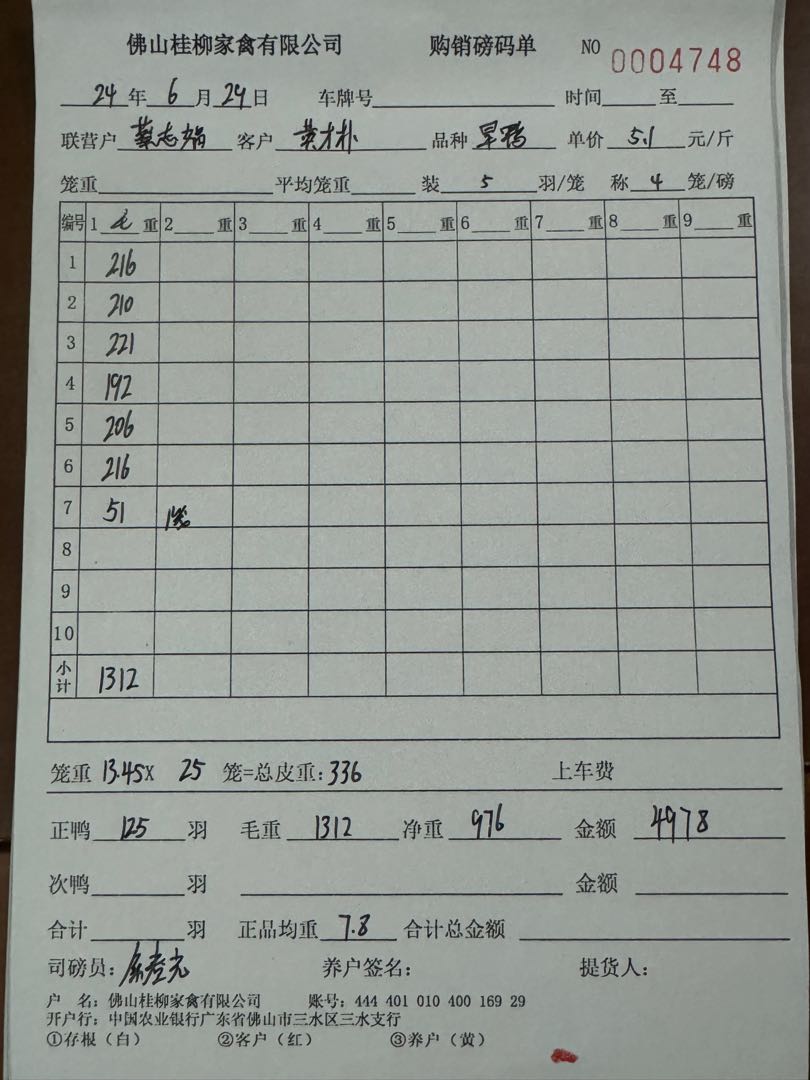 佛山桂柳家禽有限公司 购销磅码单 NO 0004748
24年6月29日 车牌号 时间 至
联营户 蔡志娟 客户 英才朴 品种 旱鸭 单价 5.1 元/斤
笼重 平均笼重 装 5 羽/笼 称 4 笼/磅
编号 1 毛 重 2 重 3 重 4 重 5 重 6 重 7 重 8 重 9 重
1 216
2 210
3 221
4 192
5 206
6 216
7 51 1笼
8
9
10
小计 1312
笼重 13.45X 25 笼=总皮重:336 上车费
正鸭 125 羽 毛重 1312 净重 976 金额 4978
次鸭 羽 金额
合计 羽 正品均重 7.8 合计总金额
司磅员: 养户签名: 提货人:
户 名: 佛山桂柳家禽有限公司 账号: 444 401 010 400 169 29
开户行: 中国农业银行广东省佛山市三水区三水支行
①存根(白) ②客户(红) ③养户(黄)